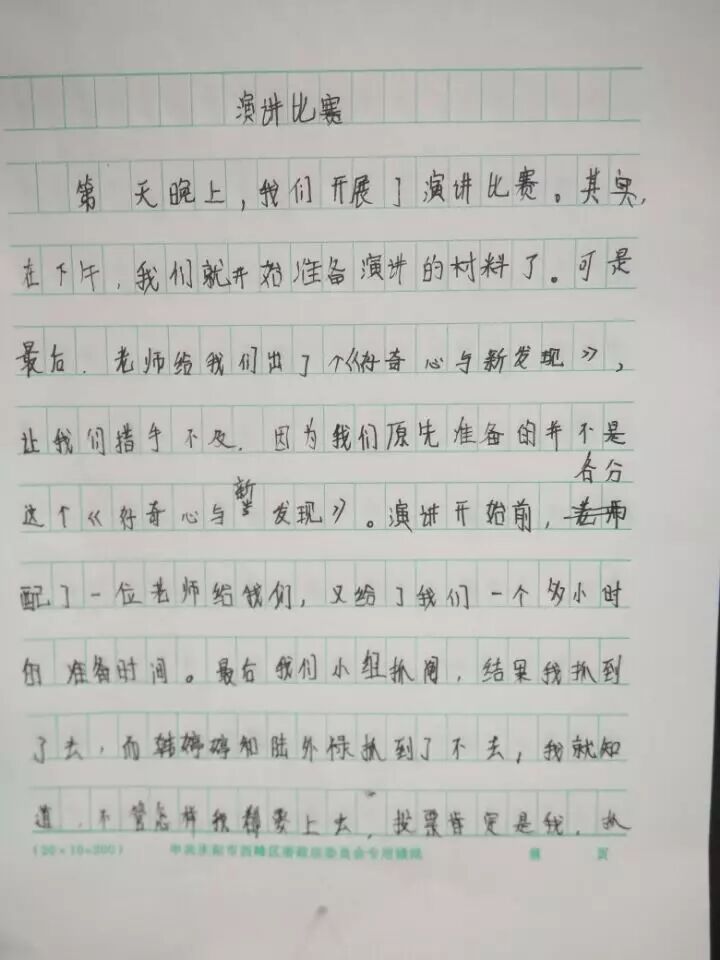 演讲比赛
第 天晚上，我们开展了演讲比赛。其实，
在下午，我们就开始准备演讲的材料了。可是
最后，老师给我们出了个《好奇心与新发现》，
让我们措手不及，因为我们原先准备的并不是
各分
这个《好奇心与新发现》。演讲开始前，老师
配了一位老师给我们，又给了我们一个多小时
的准备时间。最后我们小组抓阄，结果我抓到
了去，而韩婷婷和陆外禄抓到了不去，我就知
道，不管怎样我都要上去，投票肯定是我，抓
(20×10=200) 中共 阳市西峰区 委员会专用稿纸 第 页